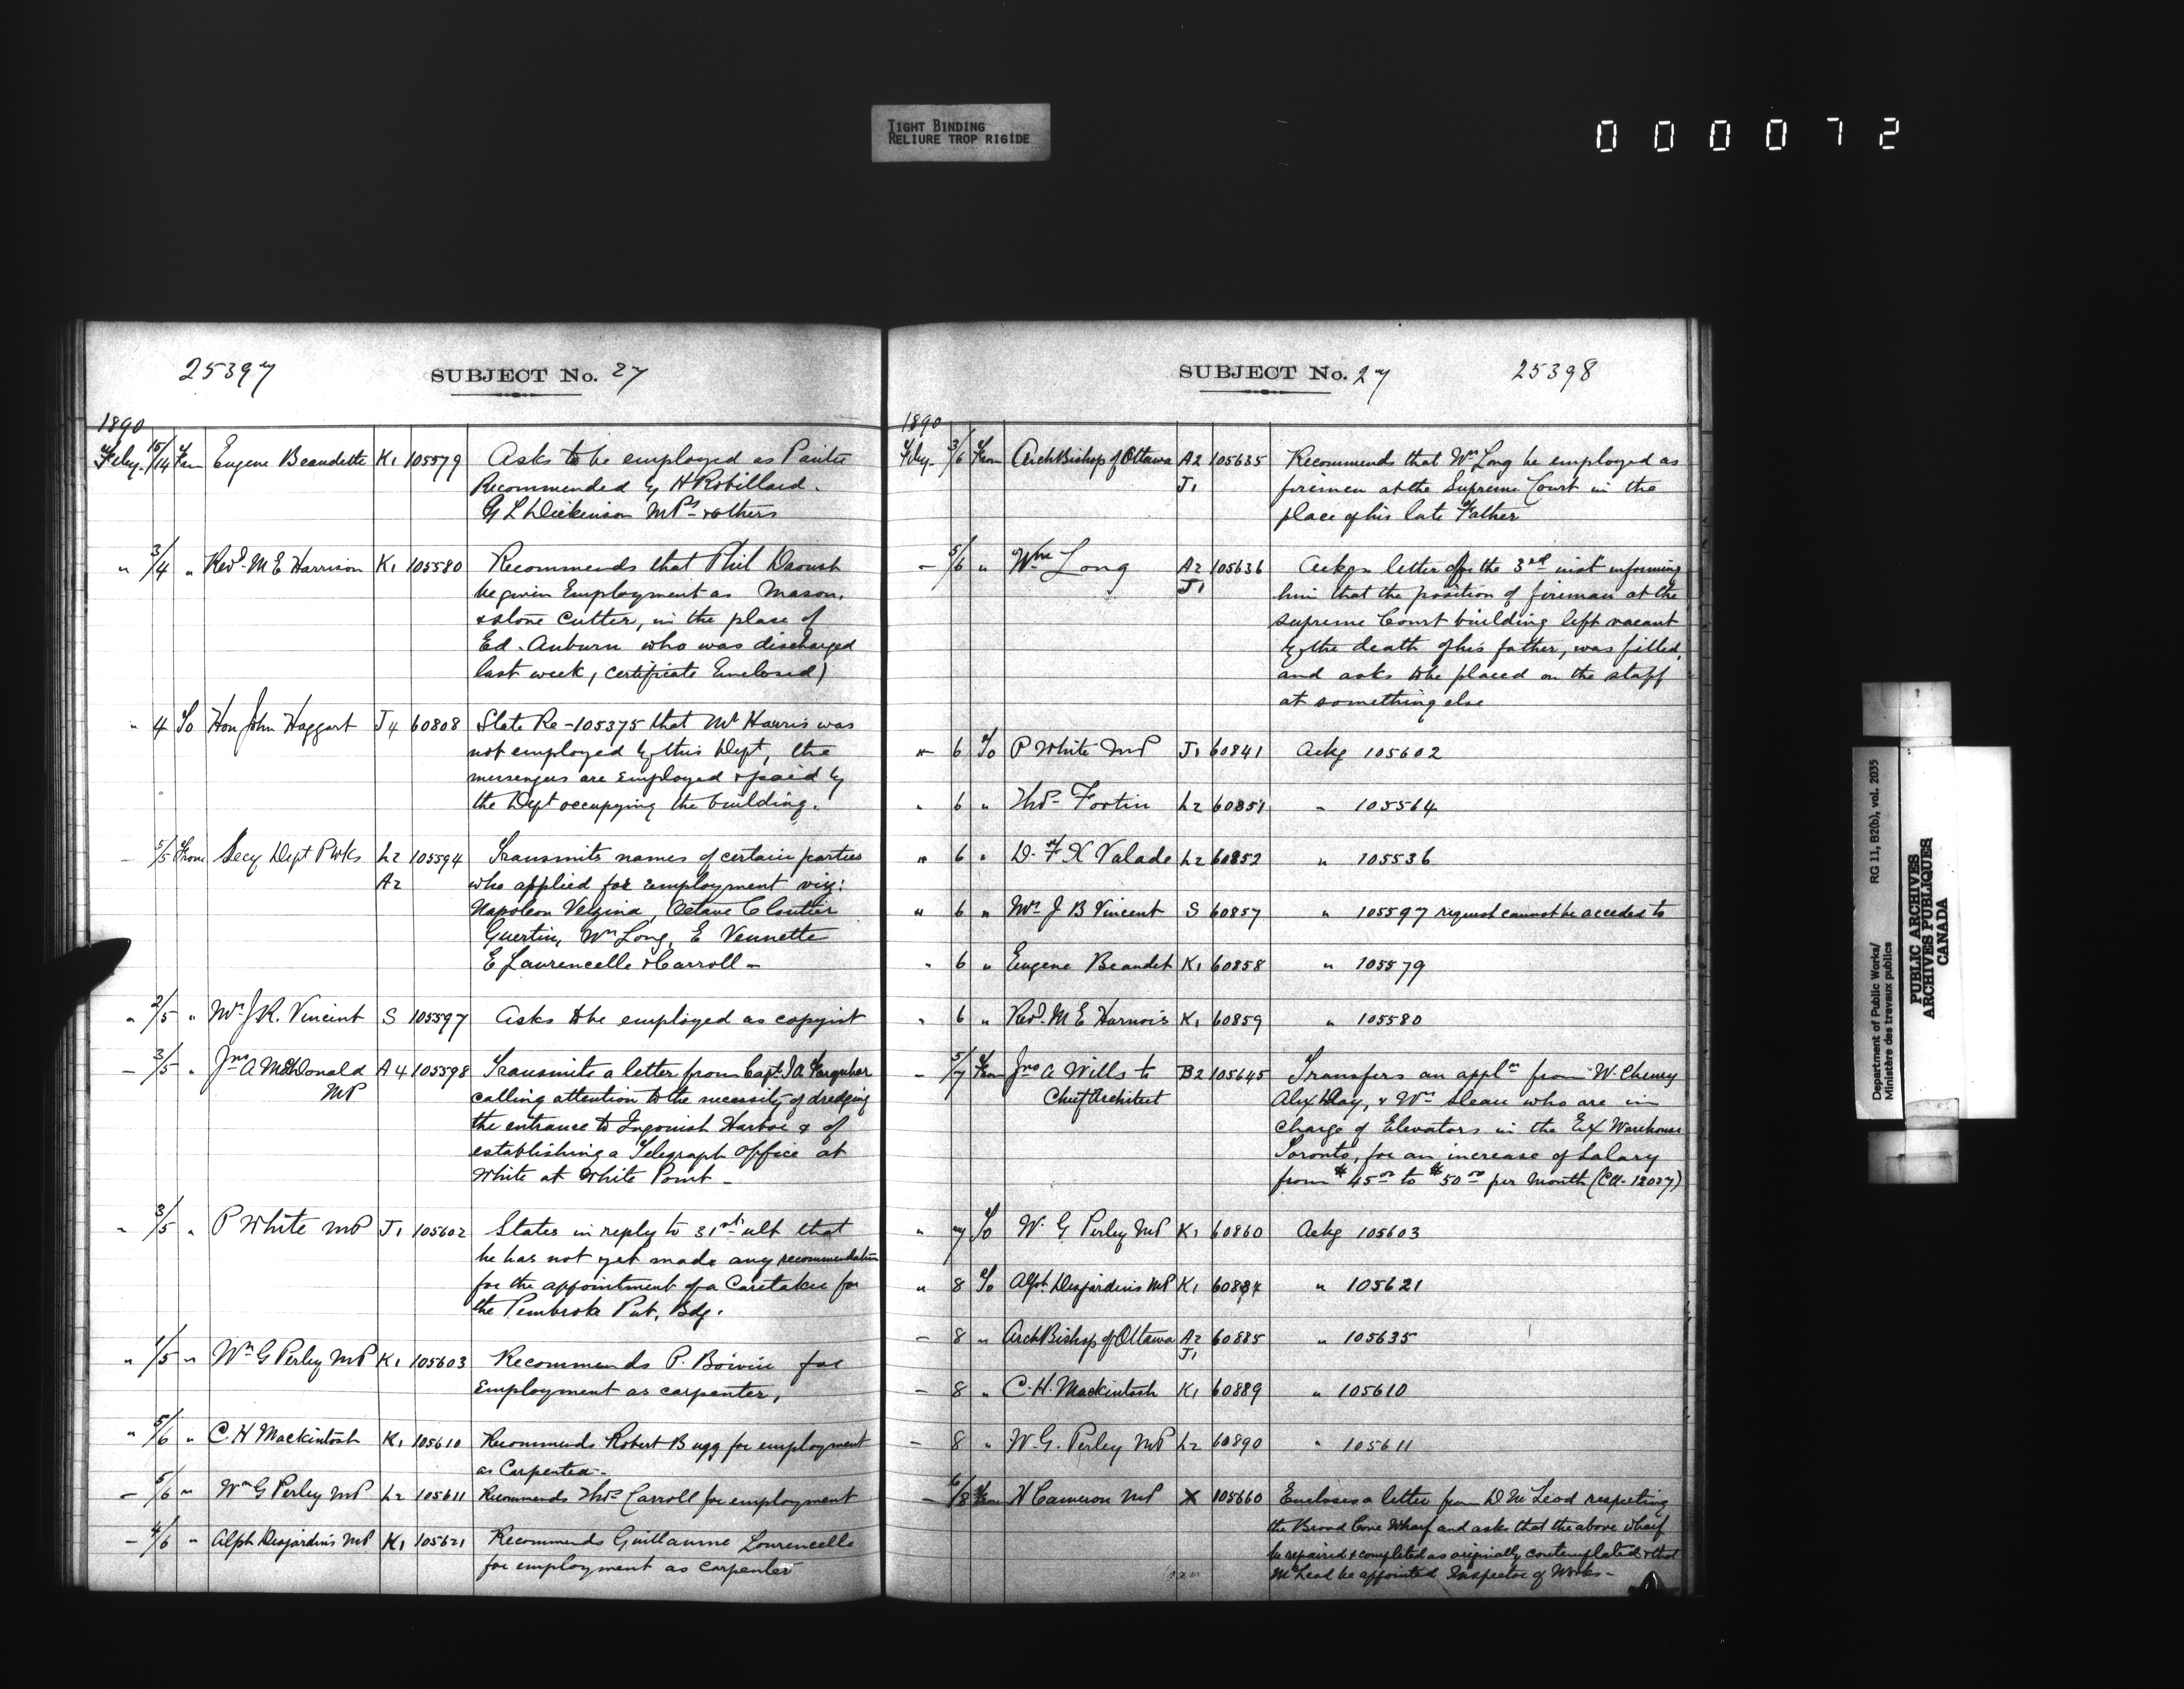 TIGHT BINDING
RELIURE TROP RIGIDE
0 0 0 0 7 2
25397
SUBJECT No. 27
1890
Feby. 15/14 From Eugene Beaudette K1 105579 Asks to be employed as Painter
Recommended by H Robillard.
G L Dickinson MPs & others
" 3/4 " Revd. M E Harrison K1 105580 Recommends that Phil Daoust
be given Employment as Mason.
& stone Cutter, in the place of
Ed. Auburn who was discharged
last week, (certificate Enclosed)
" 4 To Hon John Haggart J4 60808 State Re - 105375 that Mr Harris was
not employed by this Dept, the
messengers are employed & paid by
the Dept occupying the building.
- 5/5 From Secy Dept P Wks L2 105594 Transmits names of certain parties
A2 who applied for employment viz:
Napoleon Vezina, Octave Cloutier
Guertin, Wm Long, E Vennette
E Laurencelle & Carroll -
" 2/5 " Mrs J R. Vincent S 105597 Asks to be employed as copyist
- 3/5 " Jno A McDonald A4 105598 Transmits a letter from Capt. J A Farquhar
MP calling attention to the necessity of dredging
the entrance to Ingonish Harbor & of
establishing a Telegraph office at
White at White Point -
" 3/5 " P White MP J1 105602 States in reply to 31st ult that
he has not yet made any recommendation
for the appointment of a Caretaker for
the Pembroke Pub. Bdg.
" 1/5 " Wm G Perley MP K1 105603 Recommends P. Boivin for
Employment as carpenter,
" 5/6 " C. H Mackintosh K1 105610 Recommends Robert Bugg for employment
as Carpenter -
- 5/6 " Wm G Perley MP L2 105611 Recommends Thos Carroll for employment
- 4/6 " Alph Desjardins MP K1 105621 Recommends Guillaume Lourencelle
for employment as carpenter
SUBJECT No. 27
25398
1890
Feby - 3/6 From ArchBishop of Ottawa A2 105635 Recommends that Wm Long be employed as
J1 firemen at the Supreme Court in the
place of his late Father
- 5/6 " Wm Long A2 105636 Ackgs letter of the 3rd inst informing
J1 him that the position of fireman at the
Supreme Court building left vacant
by the death of his father, was filled,
and asks to be placed on the staff
at something else
" 6 To P White MP J1 60841 Ackg 105602
" 6 " Thos Fortin L2 60851 - 105564
" 6 " D. F X Valade L2 60852 " 105536
" 6 " Mrs J B Vincent S 60857 " 105597 request cannot be acceded to
" 6 " Eugene Beaudet K1 60858 " 105579
" 6 " Revd. M E Harnois K1 60859 " 105580
- 5/7 From Jno A Wills to B2 105645 Transfers an appln from W. Cheney
Chief Architect Alex Hay, & Wm Sleau who are in
charge of Elevators in the Ex Warehouse
Toronto, for an increase of Salary
from $45.00 to $50.00 per month (CA. 12027)
" 7 To W. G Perley MP K1 60860 Ackg 105603
" 8 To Alph. Desjardins MP K1 60884 " 105621
- 8 " ArchBishop of Ottawa A2 60885 " 105635
J1
- 8 " C. H. Mackintosh K1 60889 " 105610
- 8 " W. G. Perley MP L2 60890 " 105611
- 6/8 From H Cameron MP X 105660 Encloses a letter from D McLeod respecting
the Broad Cove Wharf and asks that the above wharf
be repaired & completed as originally contemplated & that
McLeod be appointed Inspector of Works -
Department of Public Works/
Ministère des travaux publics
RG 11, B2(b), vol. 2035
PUBLIC ARCHIVES
ARCHIVES PUBLIQUES
CANADA